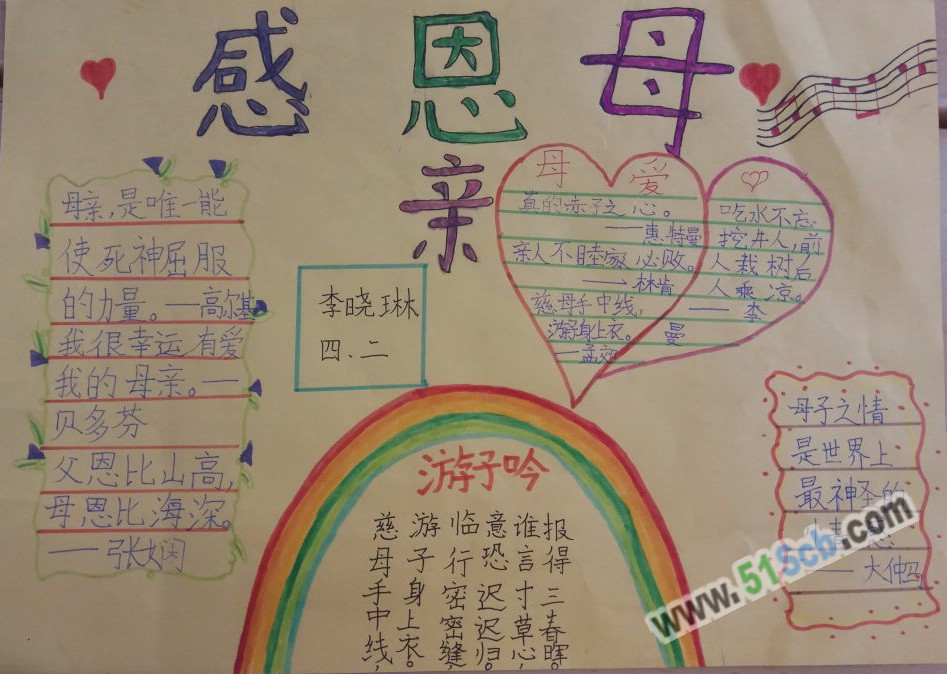 感恩母
亲
母亲,是唯一能
使死神屈服
的力量。—高尔基
我很幸运有爱
我的母亲。—
贝多芬
父恩比山高,
母恩比海深。
—张娴
李晓琳
四、二
母爱
真的赤子之心。
——惠特曼
亲人不睦家必败。
——林肯
慈母手中线,
游子身上衣。
—孟郊
吃水不忘
挖井人,前
人栽树后
人乘凉。
——李
曼
游子吟
慈母手中线,
游子身上衣。
临行密密缝,
意恐迟迟归。
谁言寸草心,
报得三春晖。
母子之情
是世界上
最神圣的
情
——大仲马
www.51Scb.com